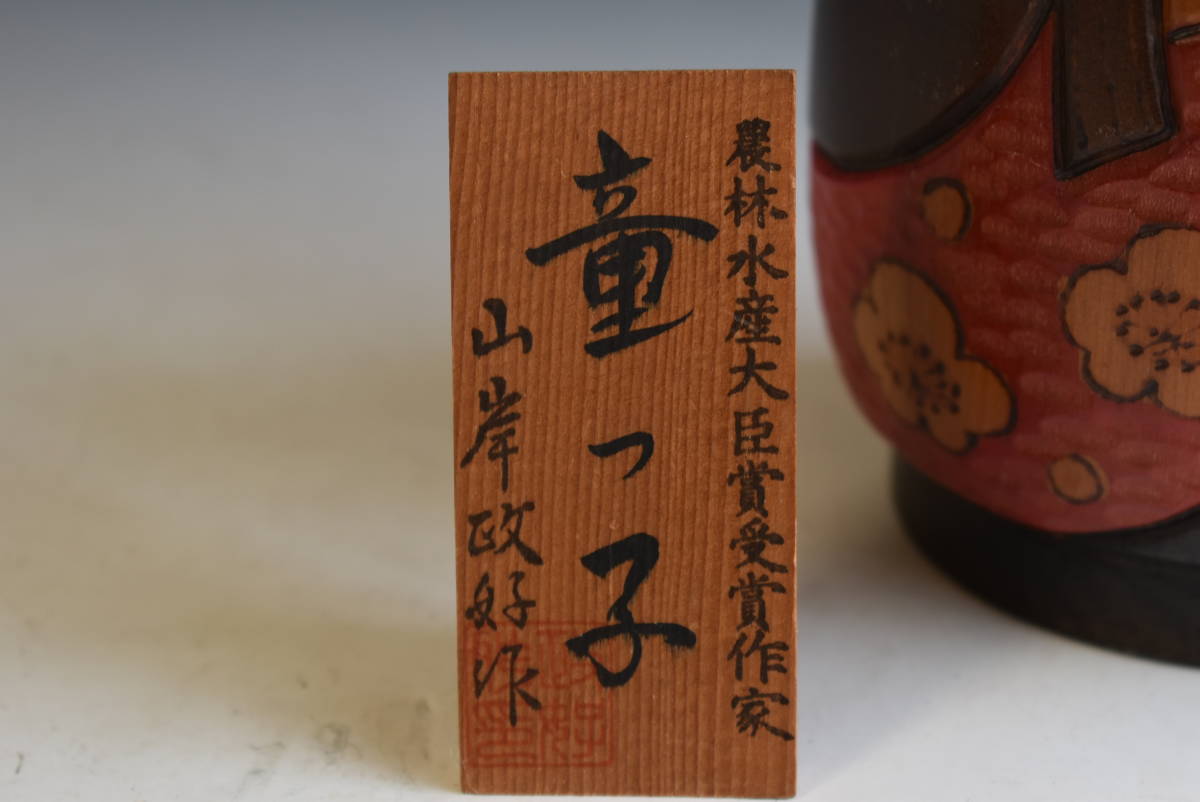 農林水産大臣賞受賞作家
童っ子
山岸政好作